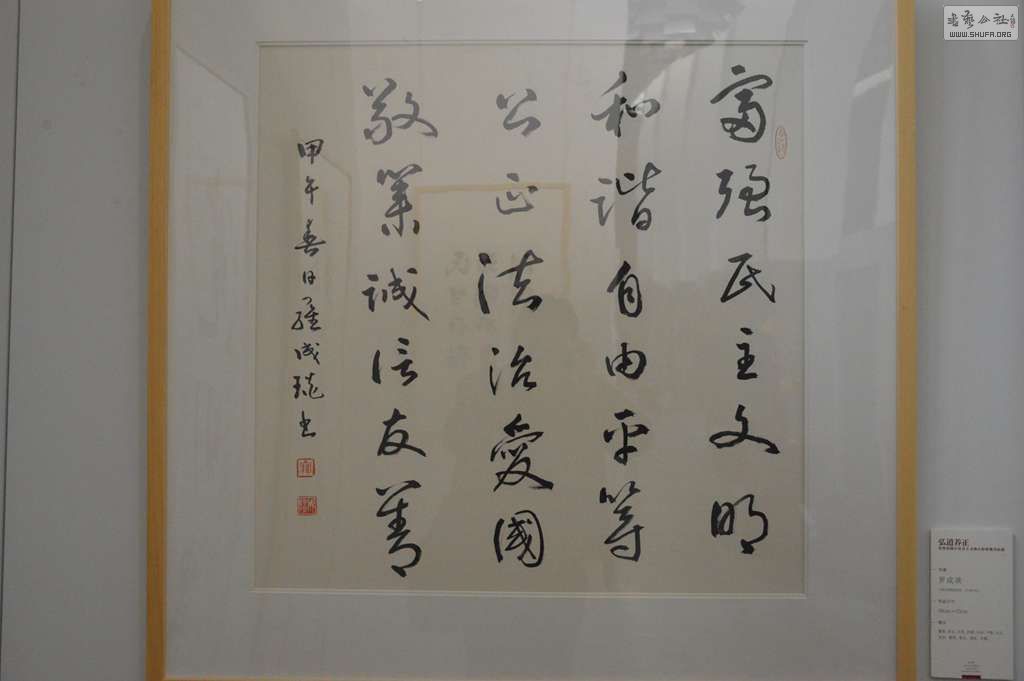 富强民主文明
和谐自由平等
公正法治愛國
敬業誠信友善
甲午春日羅成琰书
書藝公社
WWW.SHUFA.ORG
弘道养正
罗成琰